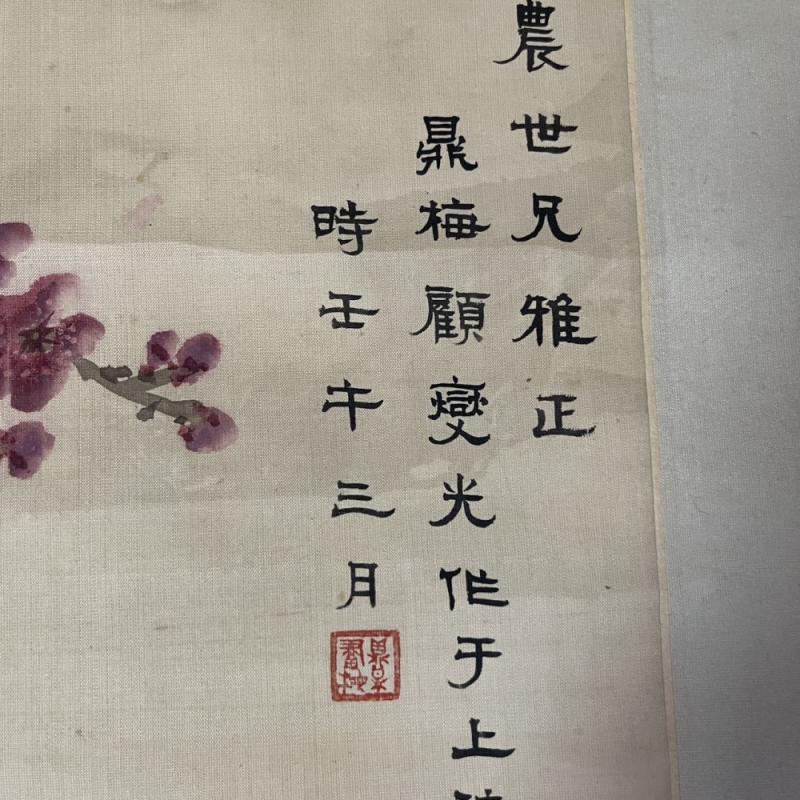 農世兄雅正
鼎梅顧燮光作于上
時壬午三月